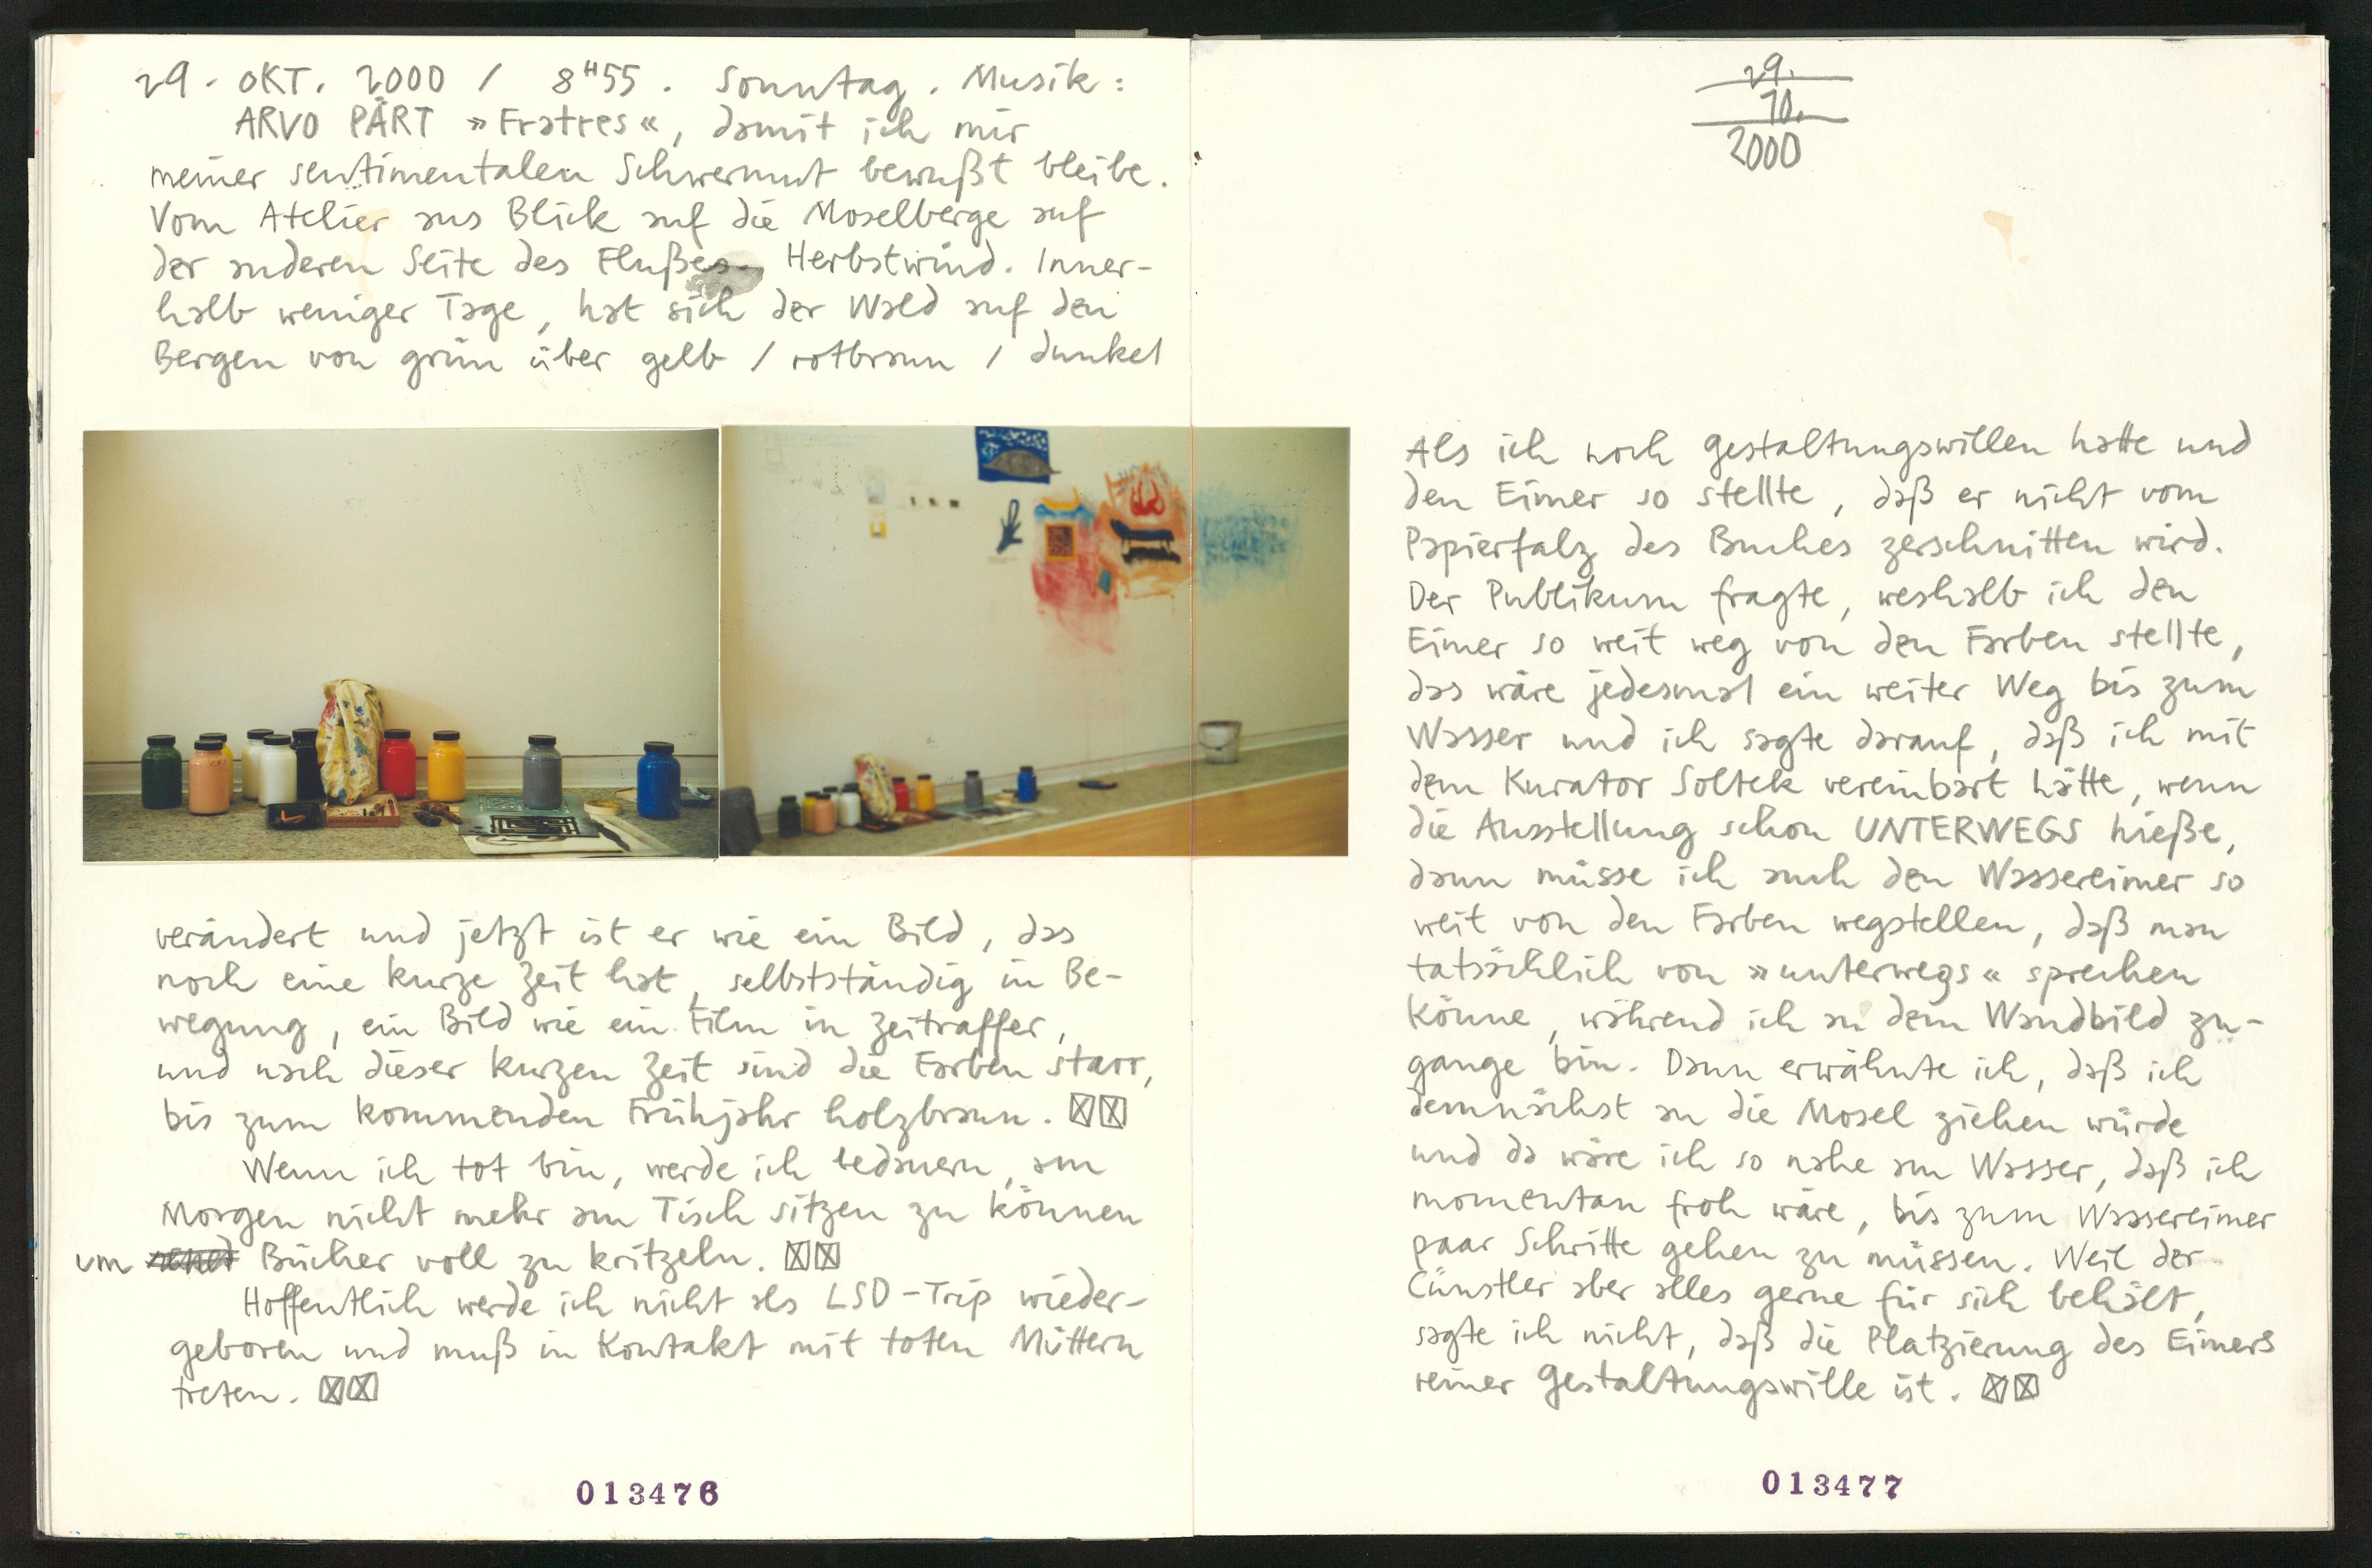 29. OKT. 2000 / 8H55. Sonntag. Musik:
ARVO PÄRT »Fratres«, damit ich mir
meiner sentimentalen Schwermut bewußt bleibe.
Vom Atelier aus Blick auf die Moselberge auf
der anderen Seite des Flußes. Herbstwind. Inner-
halb weniger Tage, hat sich der Wald auf den
Bergen von grün über gelb / rotbraun / dunkel
verändert und jetzt ist er wie ein Bild, das
noch eine kurze Zeit hat, selbstständig in Be-
wegung, ein Bild wie ein Film in Zeitraffer,
und nach dieser kurzen Zeit sind die Farben starr,
bis zum kommenden Frühjahr holzbraun.
Wenn ich tot bin, werde ich bedauern, am
Morgen nicht mehr am Tisch sitzen zu können
um Bücher voll zu kritzeln.
Hoffentlich werde ich nicht als LSD-Trip wieder-
geboren und muß in Kontakt mit toten Müttern
treten.
013476
29.
10.
2000
Als ich noch Gestaltungswillen hatte und
den Eimer so stellte, daß er nicht vom
Papierfalz des Buches zerschnitten wird.
Der Publikum fragte, weshalb ich den
Eimer so weit weg von den Farben stellte,
das wäre jedesmal ein weiter Weg bis zum
Wasser und ich sagte darauf, daß ich mit
dem Kurator Soltek vereinbart hätte, wenn
die Ausstellung schon UNTERWEGS hieße,
dann müsse ich auch den Wassereimer so
weit von den Farben wegstellen, daß man
tatsächlich von »unterwegs« sprechen
könne, während ich an dem Wandbild zu-
gange bin. Dann erwähnte ich, daß ich
demnächst an die Mosel ziehen würde
und da wäre ich so nahe am Wasser, daß ich
momentan froh wäre, bis zum Wassereimer
paar Schritte gehen zu müssen. Weil der
Cünstler aber alles gerne für sich behält,
sagte ich nicht, daß die Platzierung des Eimers
reiner Gestaltungswille ist.
013477